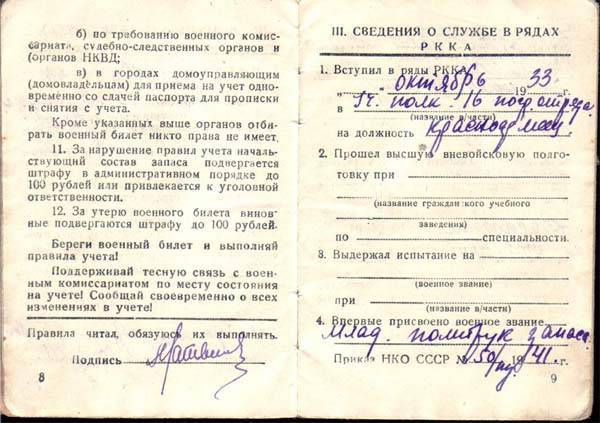 б) по требованию военного комис-
сариата, судебно-следственных органов и
(органов НКВД;
в) в городах домоуправляющим
(домовладельцам) для приема на учет одно-
временно со сдачей паспорта для прописки
и снятия с учета.
Кроме указанных выше органов отби-
рать военный билет никто права не имеет.
11. За нарушение правил учета началь-
ствующий состав запаса подвергается
штрафу в административном порядке до
100 рублей или привлекается к уголовной
ответственности.
12. За утерю военного билета винов-
ные подвергаются штрафу до 100 рублей.
Береги военный билет и выполняй
правила учета!
Поддерживай тесную связь с воен-
ным комиссариатом по месту состояния
на учете! Сообщай своевременно о всех
изменениях в учете!
Правила читал, обязуюсь их выполнять.
Подпись
8
III. СВЕДЕНИЯ О СЛУЖБЕ В РЯДАХ
РККА
1. Вступил в ряды РККА
" " октябрь 1933 г.
в полк 16 погранотряда
(название в/части)
на должность красноармеец
2. Прошел высшую вневойсковую подго-
товку при
(название гражданского учебного
заведения)
по специальности.
3. Выдержал испытание на
(военное звание)
при
(название в/части)
4. Впервые присвоено военное звание
Млад. политрук запаса
Приказ НКО СССР № 150/ 1941 г.
9